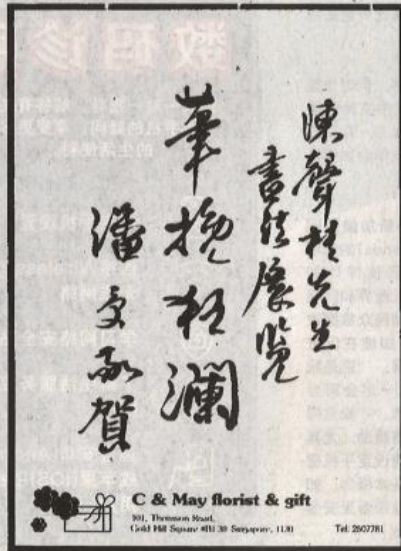 数码诊
陳聲桂先生
書法展覽
筆挽狂瀾
潘受敬賀
C & May florist & gift
101, Thomson Road,
Gold Hill Square #B1 30 Singapore, 1130
Tel: 2507781